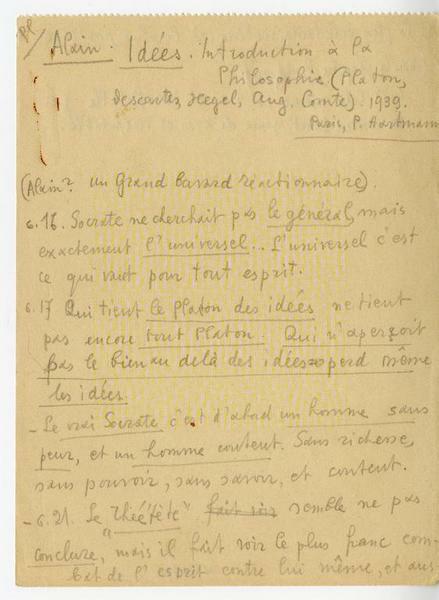 pl/
Alain. Idées. Introduction à la
Philosophie (Platon,
Descartes, Hegel, Aug. Comte). 1939.
Paris, P. Hartmann
(Alain? un Grand bavard réactionnaire).
c.16. Socrate ne cherchait pas le général, mais
exactement l'universel... L'universel c'est
ce qui vaut pour tout esprit.
c.17 Qui tient le Platon des idées ne tient
pas encore tout Platon. Qui n'aperçoit
pas le bien au delà des idées perd même
les idées.
- Le vrai Socrate c'est d'abord un homme sans
peur, et un homme content. Sans richesse,
sans pouvoir, sans savoir, et content.
- c.21. Le "Théétète" fait voir semble ne pas
conclure, mais il fait voir le plus franc com-
bat de l'esprit contre lui même, et aus-